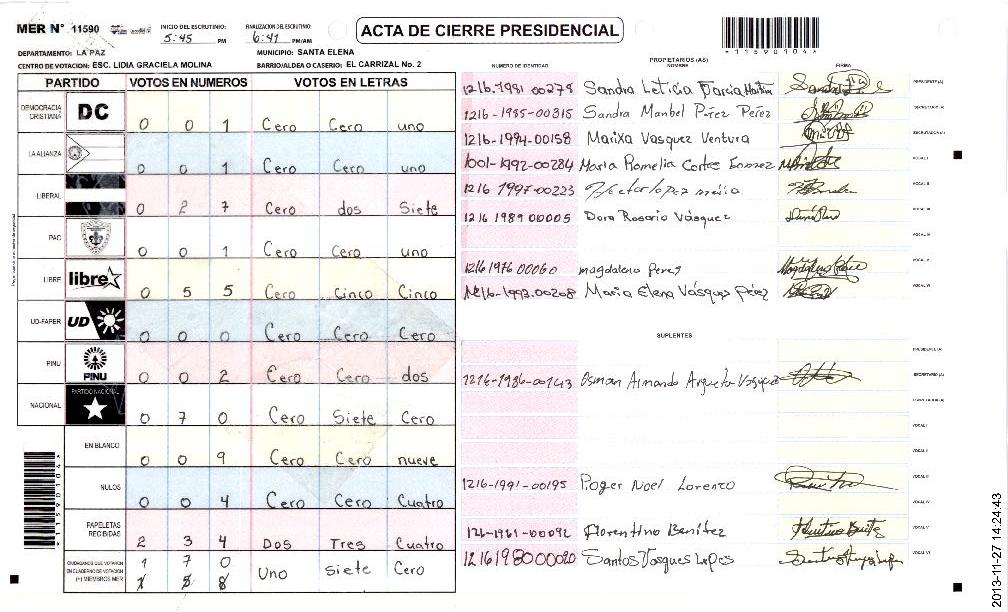 MER N° 11590
INICIO DEL ESCRUTINIO: 5:45 PM
FINALIZACION DEL ESCRUTINIO: 6:41 PM/AM
ACTA DE CIERRE PRESIDENCIAL
*11590104*
DEPARTAMENTO: LA PAZ
MUNICIPIO: SANTA ELENA
CENTRO DE VOTACION: ESC. LIDIA GRACIELA MOLINA
BARRIO/ALDEA O CASERIO: EL CARRIZAL No. 2
PARTIDO VOTOS EN NUMEROS VOTOS EN LETRAS
DEMOCRACIA CRISTIANA DC 0 0 1 Cero Cero uno
LA ALIANZA 0 0 1 Cero Cero uno
LIBERAL 0 2 7 Cero dos Siete
PAC 0 0 1 Cero Cero uno
LIBRE libre 0 5 5 Cero Cinco Cinco
UD-FAPER UD 0 0 0 Cero Cero Cero
PINU PINU 0 0 2 Cero Cero dos
NACIONAL PARTIDO NACIONAL 0 7 0 Cero Siete Cero
EN BLANCO 0 0 9 Cero Cero nueve
NULOS 0 0 4 Cero Cero Cuatro
PAPELETAS RECIBIDAS 2 3 4 Dos Tres Cuatro
CIUDADANOS QUE VOTARON EN CUADERNO DE VOTACION (+) MIEMBROS MER 1 7 0 Uno siete Cero
1 5 8
*11590104*
PROPIETARIOS (AS)
NUMERO DE IDENTIDAD NOMBRE FIRMA
1216-1981 00279 Sandra Leticia Garcia PRESIDENTE (A)
1216-1985-00315 Sandra Maribel Pérez Pérez SECRETARIO (A)
1216-1994-00158 Marixa Vasquez Ventura ESCRUTADOR (A)
1001-1992-00284 Maria Romelia Cortes Gomez VOCAL I
1216 1997-00223 Hector lopez VOCAL II
1216 1989 00005 Dora Rosario Vásquez VOCAL III
VOCAL IV
1216 1976 00060 magdaleno Perez VOCAL V
1216-1993-00208 Maria Elena Vásquez Pérez VOCAL VI
SUPLENTES
PRESIDENTE (A)
1216-1986-00143 Osman Armando Argueta Vasquez SECRETARIO (A)
ESCRUTADOR (A)
VOCAL I
VOCAL II
1216-1991-00195 Roger Noel Lorenzo VOCAL III
VOCAL IV
126-1961-00092 Florentino Benítez VOCAL V
1216198000020 Santos Vasques Lopes VOCAL VI
2013-11-27 14:24:43